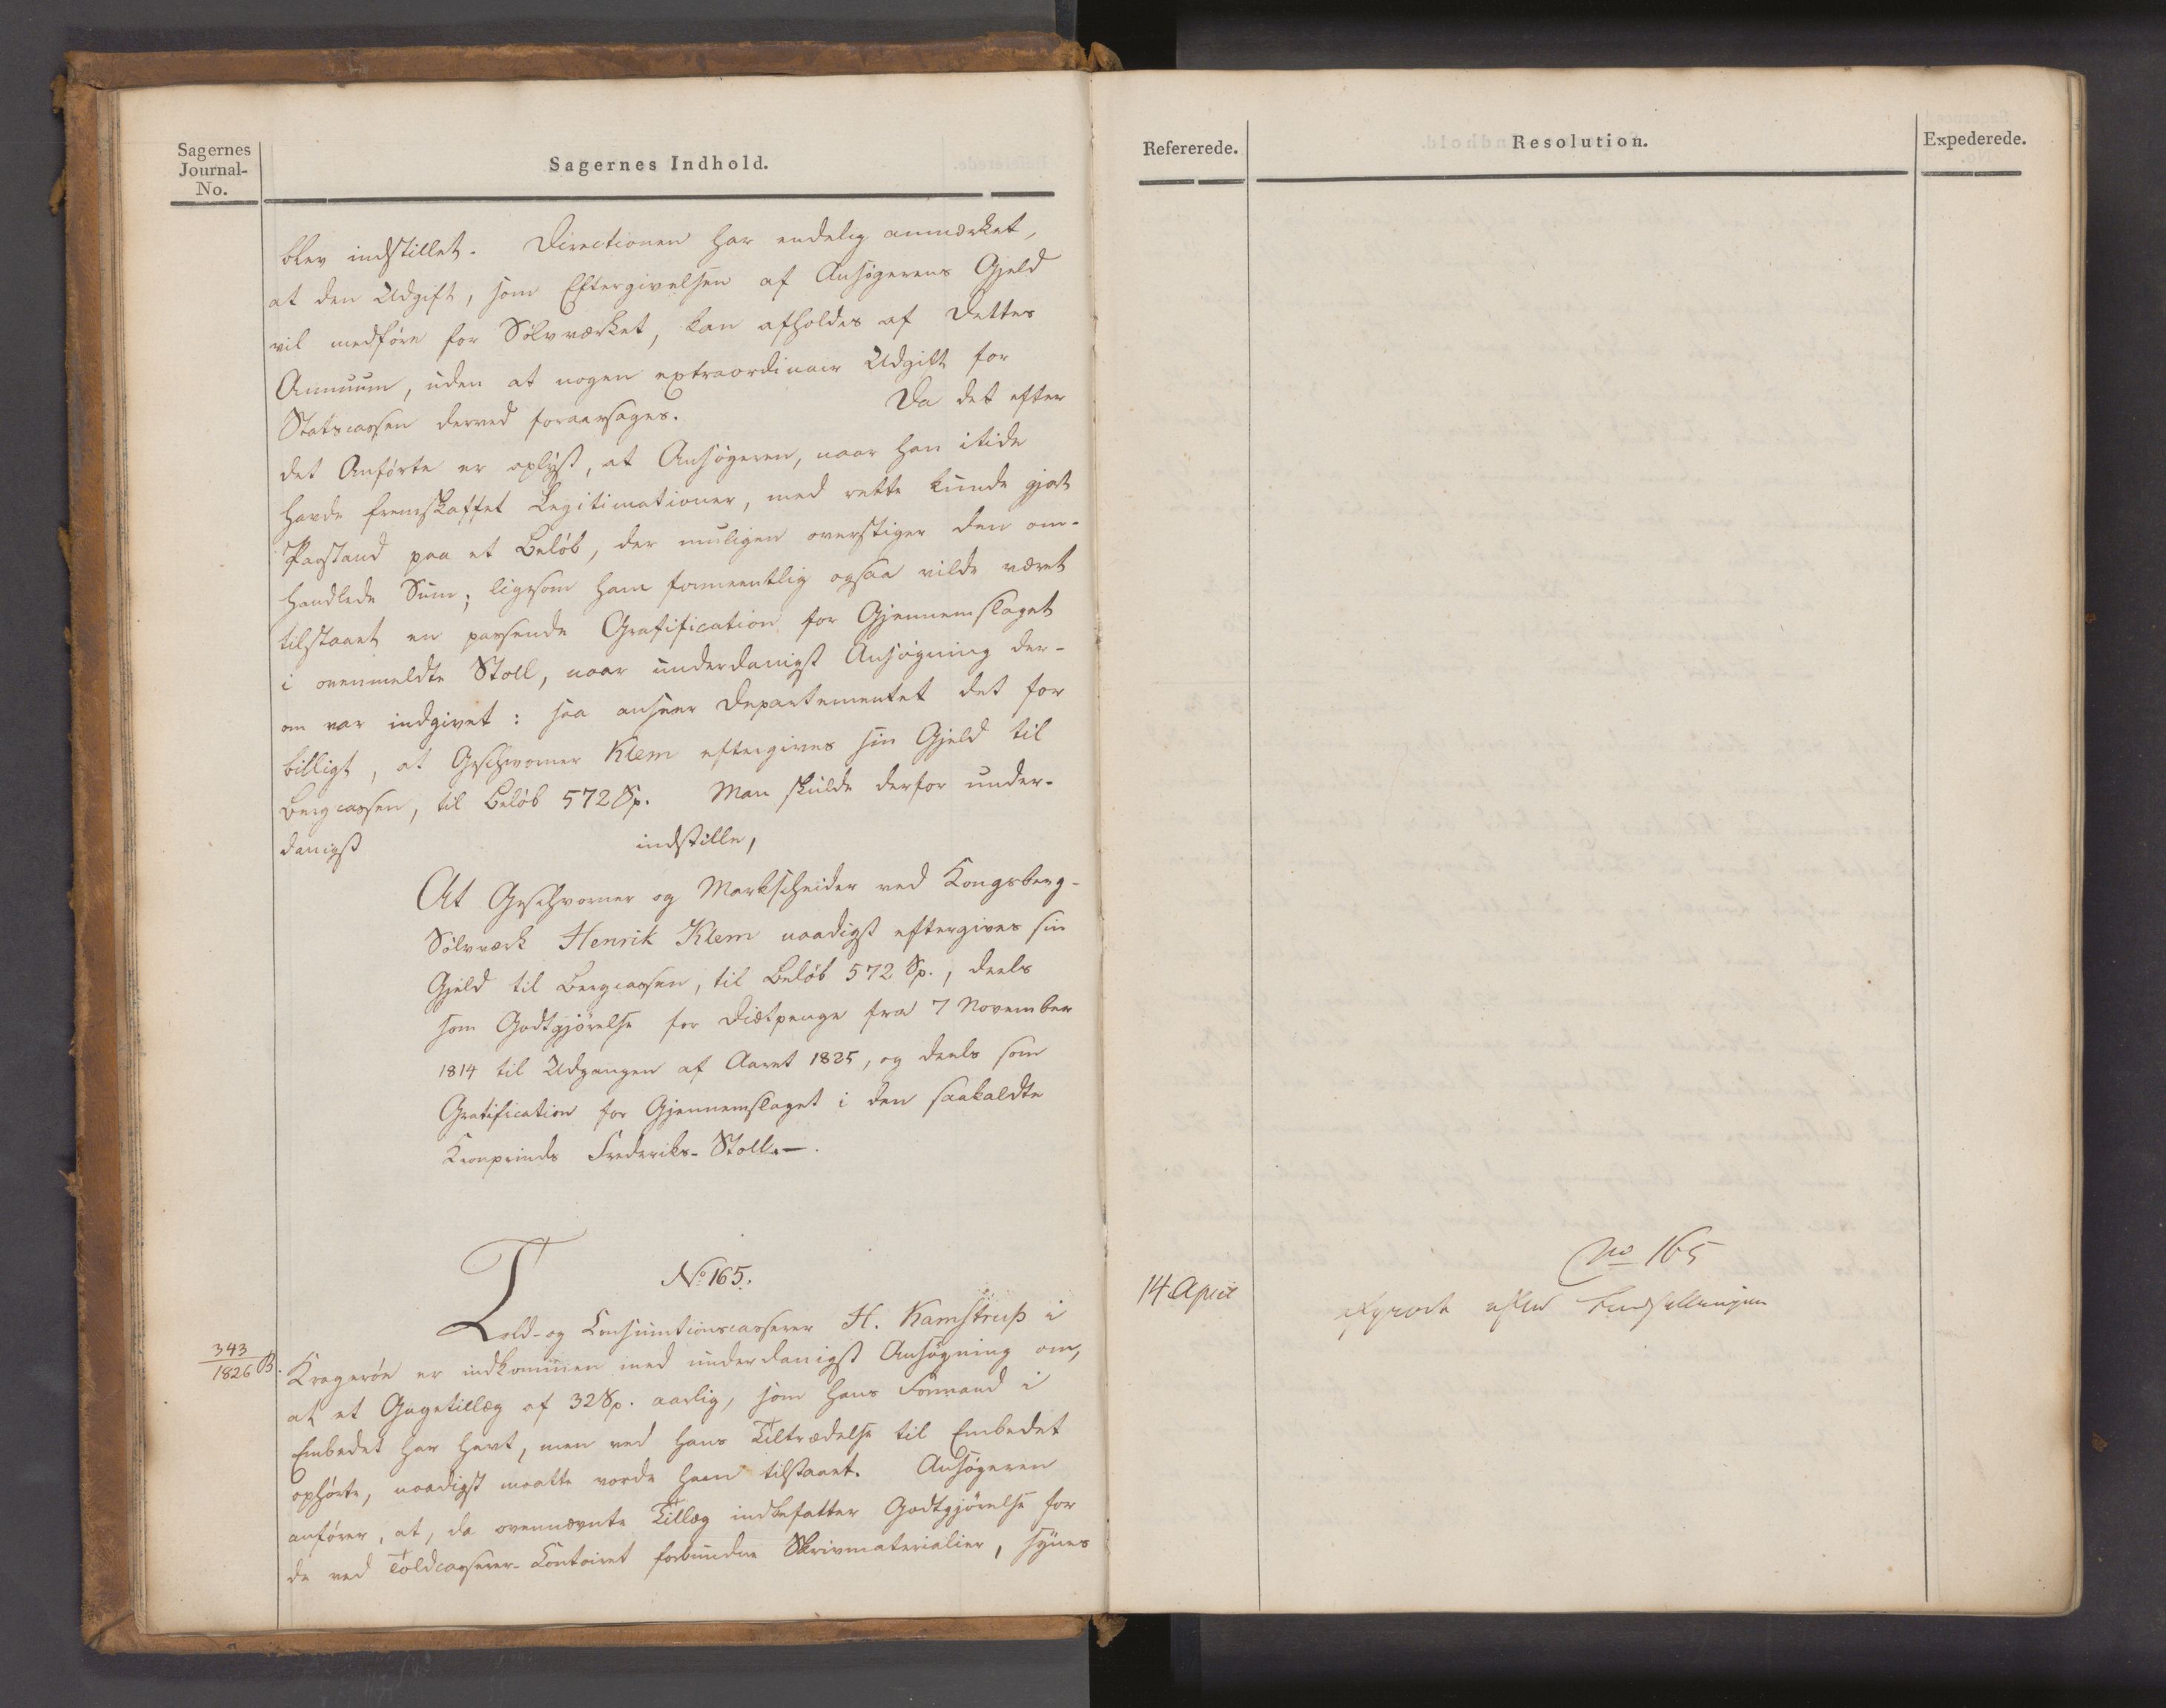 Sagernes
Journal-
No.
Sagernes Indhold.
blev indstillet. Directionen har endelig anmærket,
at den Udgift, som Eftergivelsen af Ansögerens Gjeld
vil medföre for Sölvværket, kan afholdes af dettes
Annuum, uden at nogen extraordinair Udgift for
Statscassen derved foraarsages. Da det efter
det Anförte er oplyst, at Ansögeren, naar han itide
havde fremskaffet Legitimationer, med rette kunde gjort
Paastand paa et Belöb, der muligen overstiger den om-
handlede Sum; ligesom ham formeentlig ogsaa vilde været
tilstaaet en passende Gratification for Gjennemslaget
i ovenmeldte Stoll, naar underdanigst Ansögning der-
om var indgivet: saa anseer Departementet det for
billigt, at Geschworner Klem eftergives sin Gjeld til
Bergcassen, til Belöb 572 Sp. Man skulde derfor under-
danigst indstille,
At Geschworner og Markscheider ved Kongsberg-
Sölvværk Henrik Klem naadigst eftergives sin
Gjeld til Bergcassen, til Belöb 572 Sp., deels
som Godtgjörelse for Diætpenge fra 7 November
1814 til Udgangen af Aaret 1825, og deels som
Gratification for Gjennemslaget i den saakaldte
Kronprinds Frederiks-Stoll.—.
No. 165.
Told- og Consumtionscasserer H. Kamstrup i
343
1826 B.
Krageröe er indkommen med underdanigst Ansögning om,
at et Gagetillæg af 32 Sp. aarlig, som hans Formand i
Embedet har havt, men ved hans Tiltrædelse til Embedet
ophörte, naadigst maatte vorde ham tilstaaet. Ansögeren
anförer, at, da ovennævnte Tillæg indbefatter Godtgjörelse for
de ved Toldcasserer-Contoiret forbundne Skrivmaterialier, synes
Refererede.
Resolution.
Expederede.
No 165
14 April
afgjort efter Indstillingen